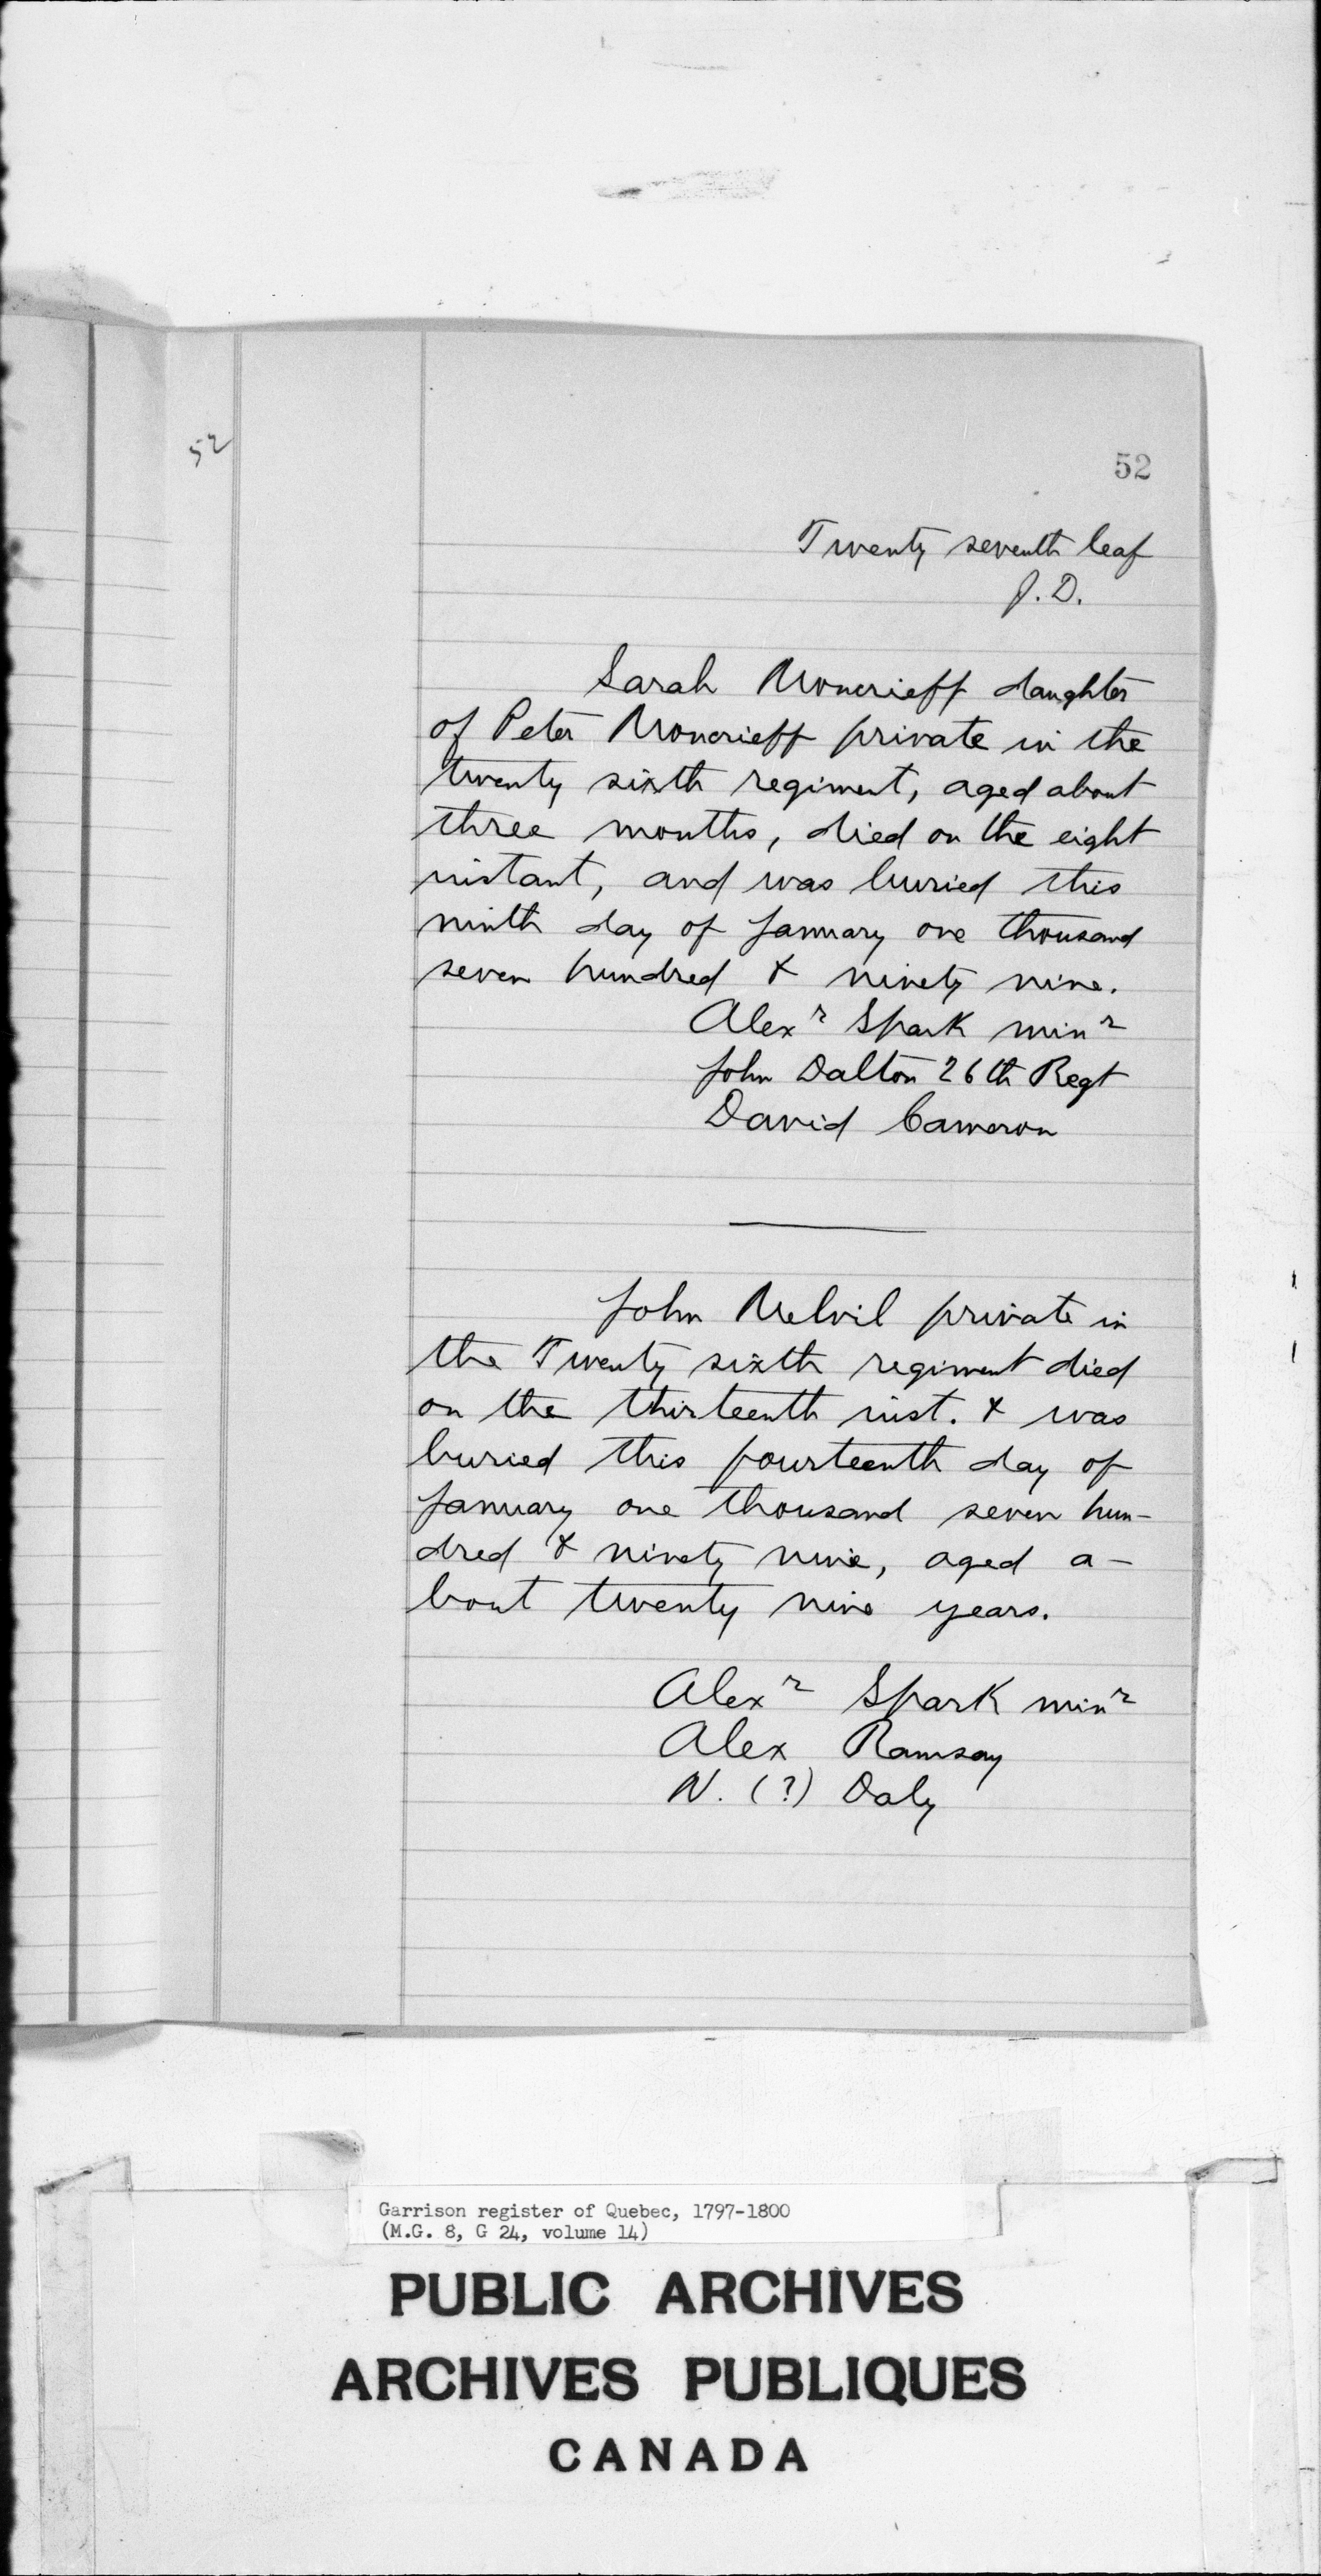 52
52
Twenty seventh leaf
J. D.
Sarah Moncrieff daughter
of Peter Moncrieff private in the
twenty sixth regiment, aged about
three months, died on the eight
instant, and was buried this
ninth day of January one thousand
seven hundred & ninety nine.
Alexr Spark minr
John Dalton 26th Regt
David Cameron
John Melvil private in
the Twenty sixth regiment died
on the thirteenth inst. & was
buried this fourteenth day of
January one thousand seven hun-
dred & ninety nine, aged a-
bout twenty nine years.
Alexr Spark minr
Alex Ramsay
N. (?) Daly
Garrison register of Quebec, 1797-1800
(M.G. 8, G 24, volume 14)
PUBLIC ARCHIVES
ARCHIVES PUBLIQUES
CANADA